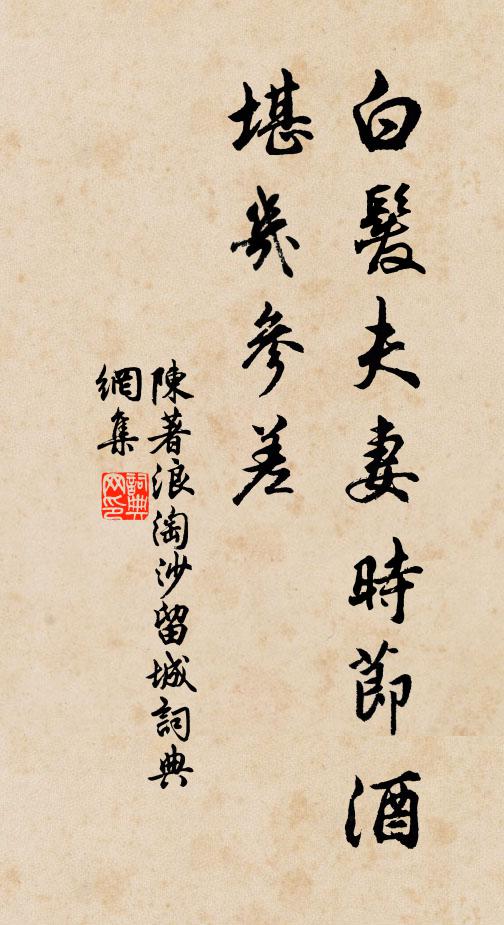 白髮夫妻時節酒
堪幾參差
陳著浪淘沙留城詞典
網集
詞典
网印